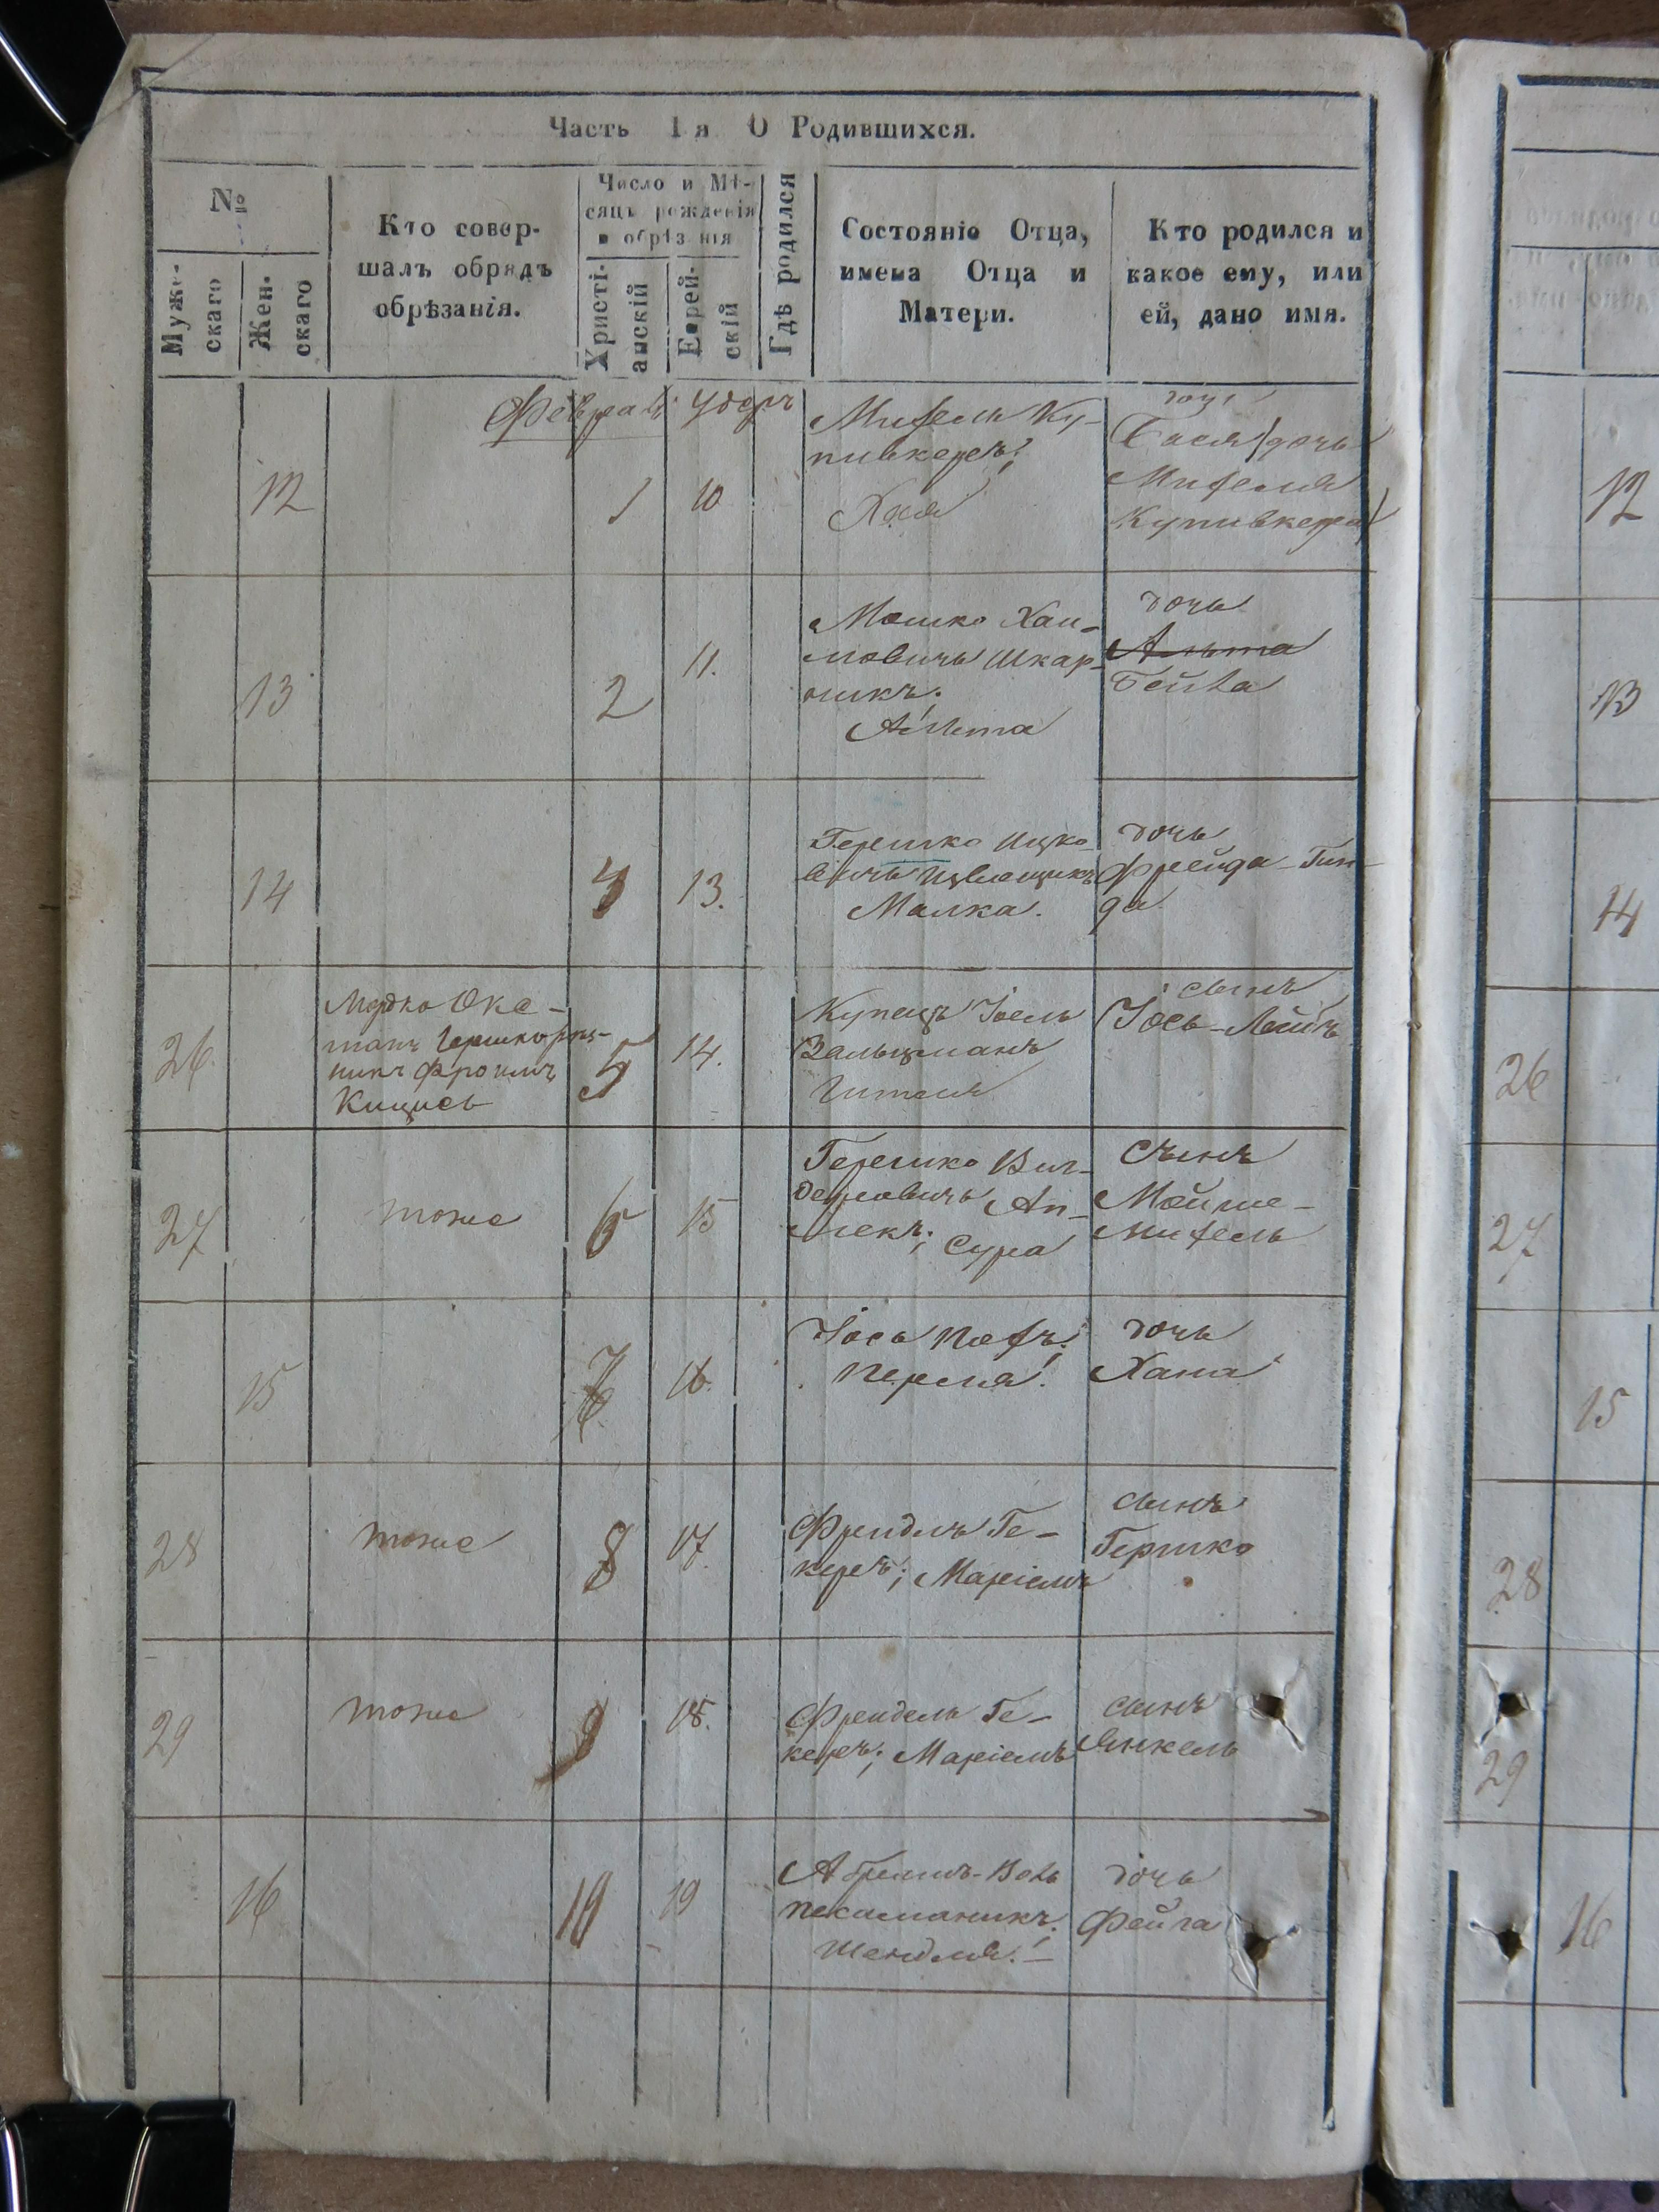 Часть 1я О Родившихся.
№
Муже-
скаго
Жен-
скаго
Кто совер-
шалъ обрядъ
обрѣзанія.
Число и Мѣ-
сяцъ рожденія
и обрѣзанія
Христі-
анскій
Еврей-
скій
Гдѣ родился
Состояніе Отца,
имена Отца и
Матери.
Кто родился и
какое ему, или
ей, дано имя.
Февраль
12
1
10
Михель Ку-
пивкеръ;
Хая
дочь
Бася (дочь
Михеля
Купивкера)
12
13
2
11.
Мошко Хаи-
мовичъ Шкар-
никъ.
Альта
дочь
Альта
Бейла
13
14
4
13.
Гершко Ицко-
вичъ
Малка.
дочь
Фрейда-Гин-
да
14
26
Мордко Окс-
манъ
Фроимъ
Кицисъ
5
14.
Купецъ Іоель
Зальцманъ
Гителя
сынъ
Іось-Лейбъ
26
27
тоже
6
15
Гершко
Сура
Сынъ
Мойше-
Михель
27
15
7
16.
Іось
Перля.
дочь
Хана
15
28
тоже
8
17.
Фреидль Ге-
керъ; Маріемъ
сынъ
Гершко
28
29
тоже
9
18.
Фреидель Ге-
керъ; Маріемъ
сынъ
Янкель
29
16
10
19
Абрамъ-Волъ
Шендля.
дочь
Фейга
16